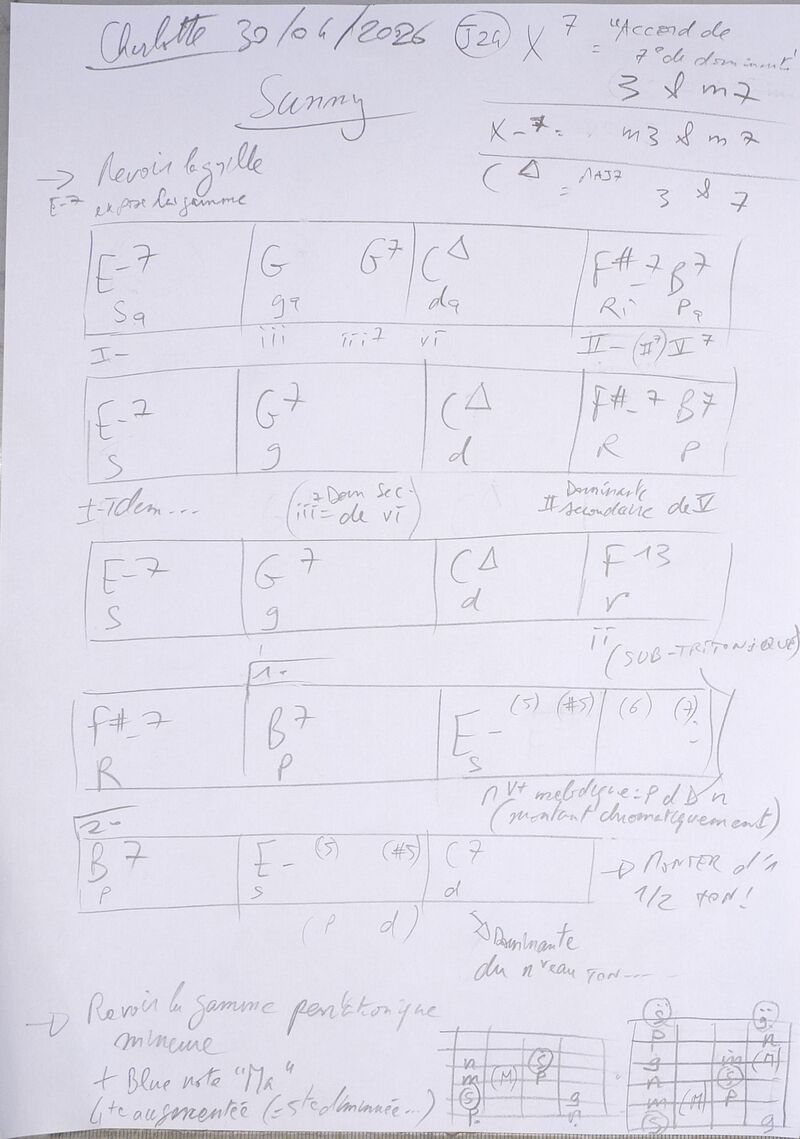 Charlotte 30/04/2026 J24 X7 = "Accord de
7e de dominante"
3 & m7
Sunny
X-7 = m3 & m7
CΔ = MAJ7 3 & 7
→ Revoir la grille
E-7
E-7 G G7 CΔ F#-7 B7
Sa ga da Ri Pa
I- iii iii7 vi II-(II7) V7
E-7 G7 CΔ F#-7 B7
S g d R P
I- Idem... (iii7= Dom Sec. de vi) II Dominante secondaire de V
E-7 G7 CΔ F13
S g d r
ii (SUB-TRITONIQUE)
1-
F#-7 B7 E- (5) (#5) (6) (7)
R P S
mvt mélodique = P d D n
(montant chromatiquement)
2-
B7 E- (5) (#5) C7 → MONTER d'1
P S d 1/2 TON!
(P d) Dominante
du nveau TON...
→ Revoir la gamme pentatonique
mineure
+ Blue note "Ma"
4te augmentée (=5te diminuée...)
n (S)
m (M) P
(S) g
P n
(S) (S)
P n
g m (M)
n (S)
m (M) P
(S) g